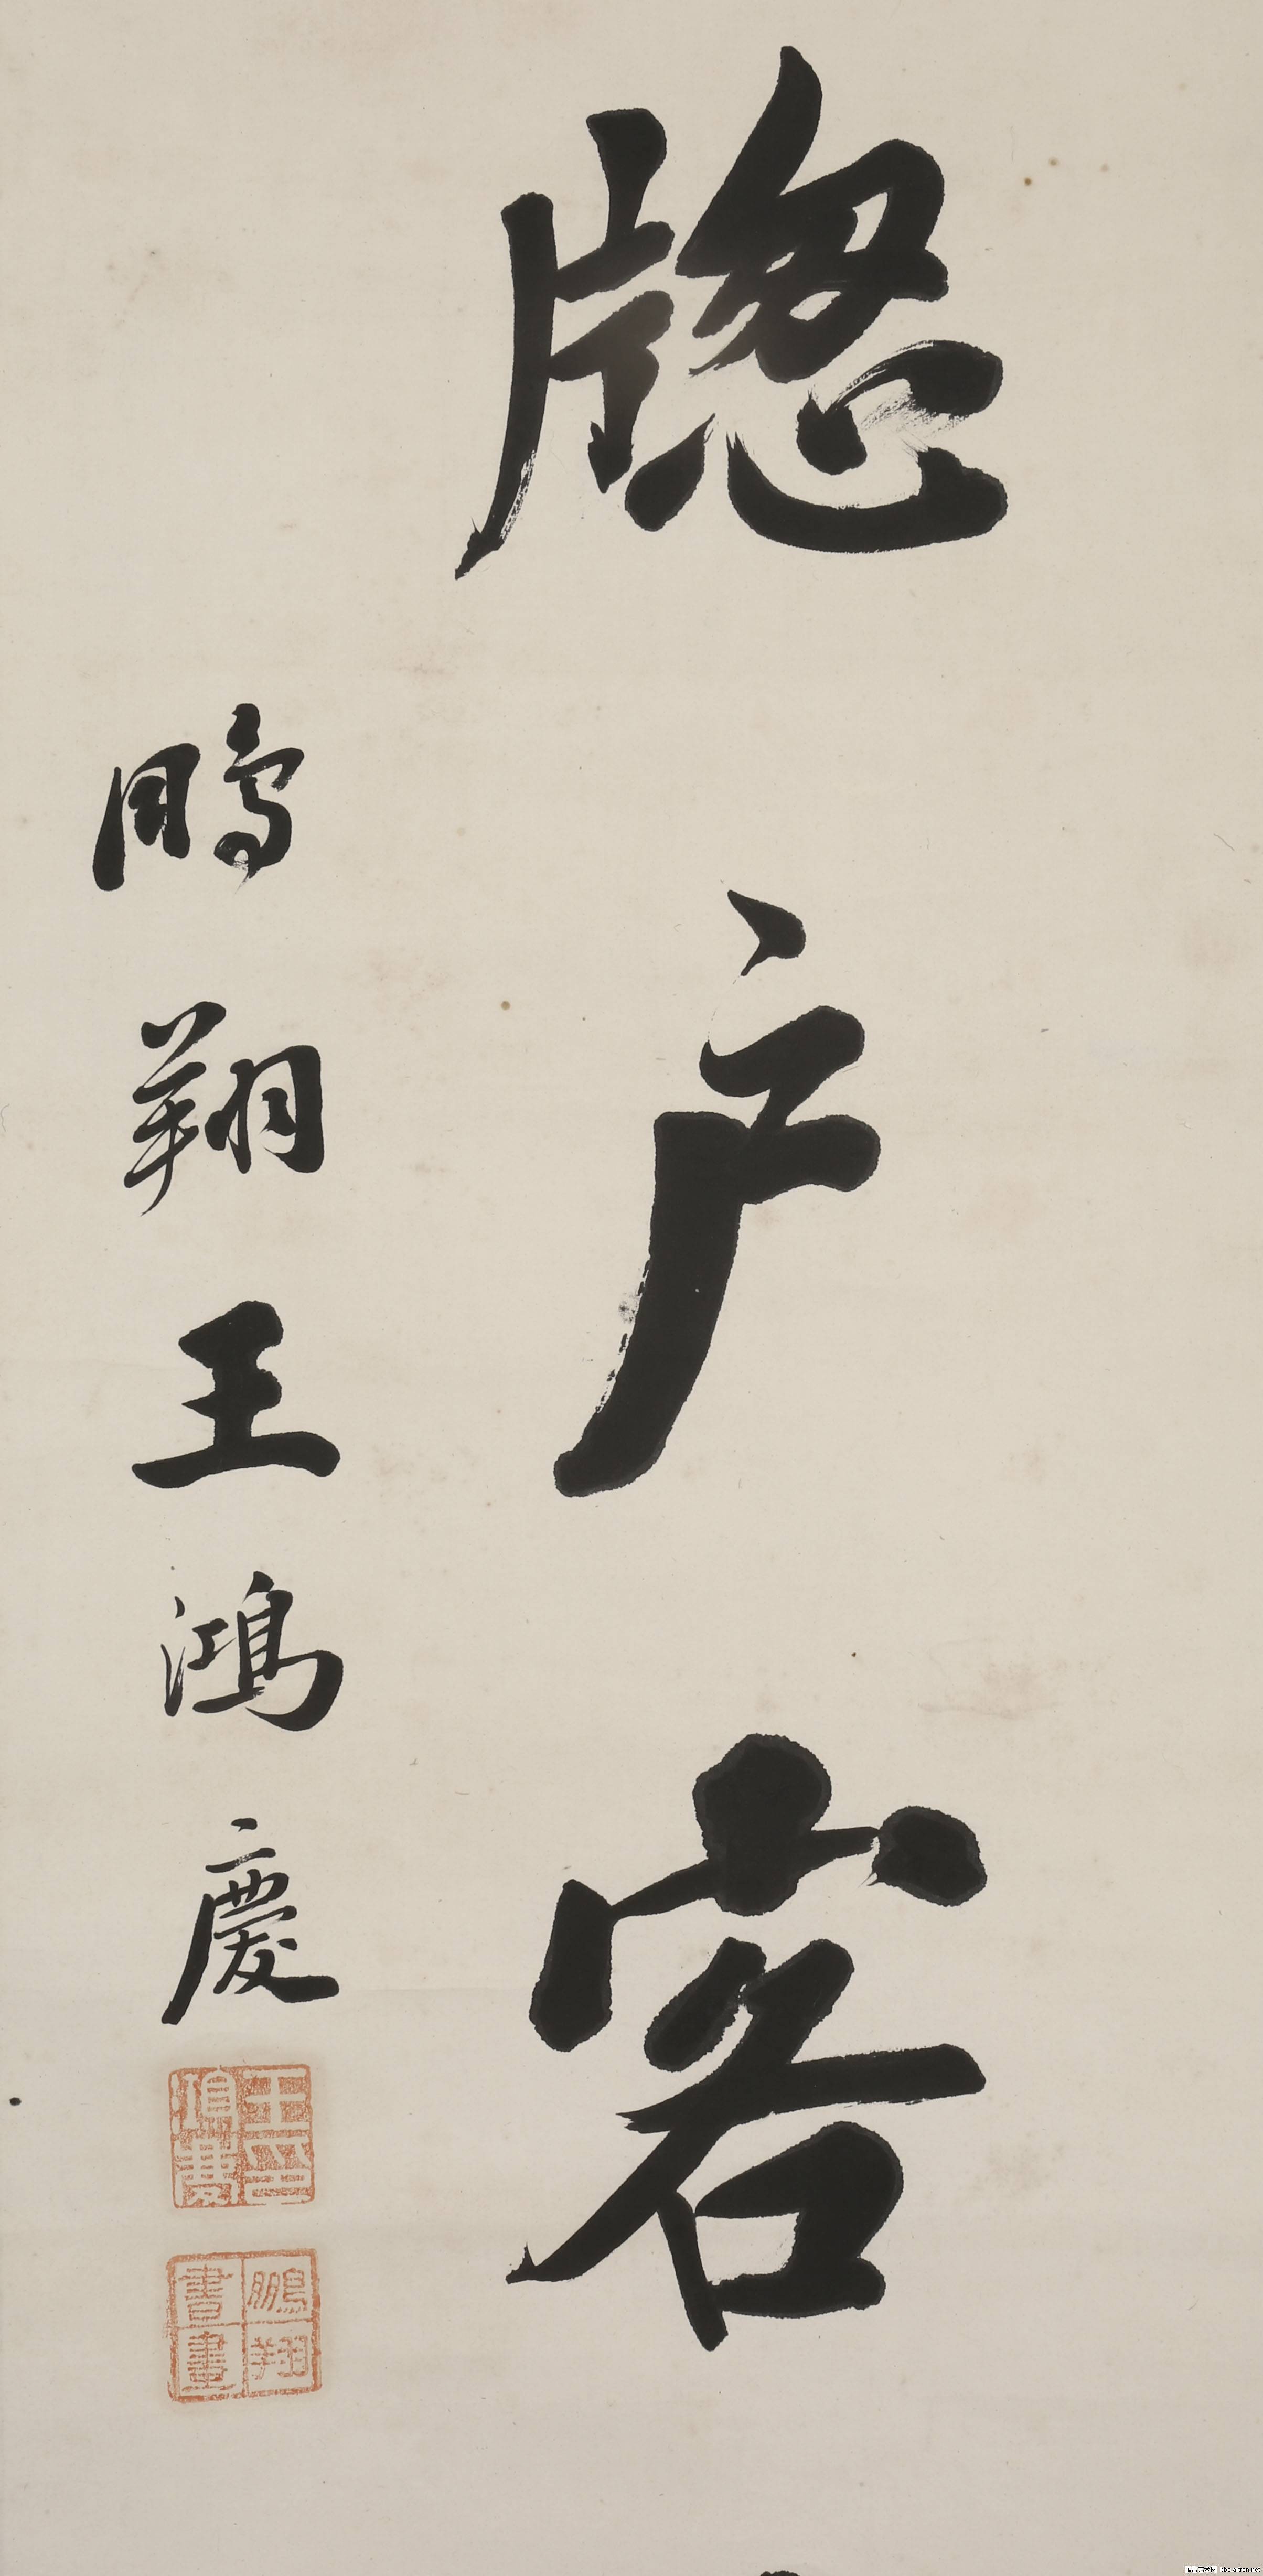 牕户容
鵬翔王鴻慶
王印
鴻慶
鵬翔
書畫
雅昌艺术网 bbs.artron.net